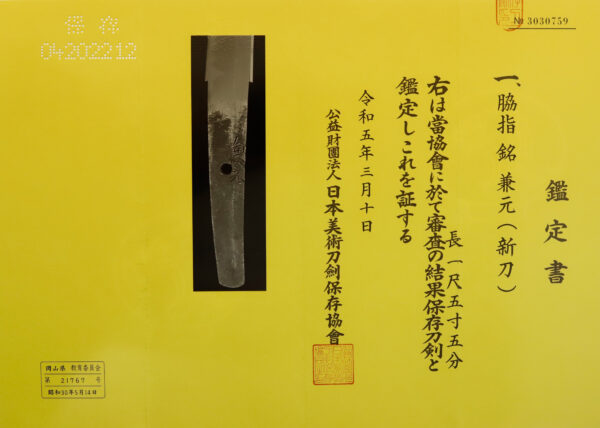 № 3030759
鑑定書
一、脇指 銘 兼元(新刀)
長 一尺五寸五分
右は當協會に於て審査の結果保存刀剣と
鑑定しこれを証する
令和五年三月十日
公益財團法人 日本美術刀劍保存協會
保存
04202212
岡山県 教育委員会
第 21767 号
昭和30年5月14日